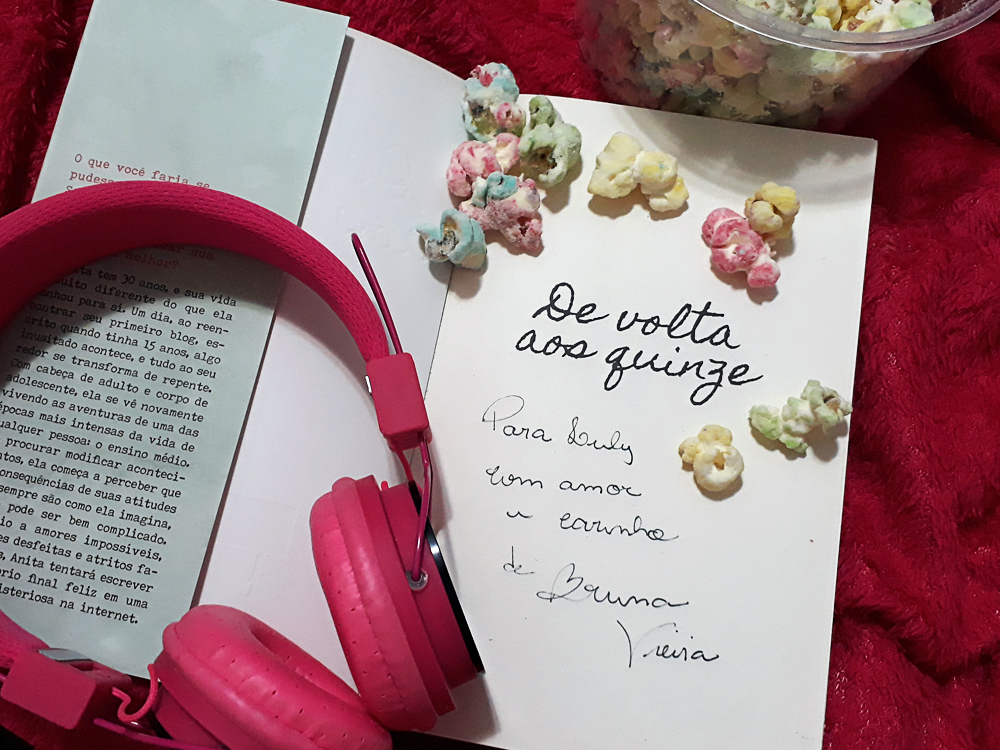 O que você faria se
pudes
melhor?
ta tem 30 anos, e sua vida
uito diferente do que ela
nhou para si. Um dia, ao reen-
contrar seu primeiro blog, es-
crito quando tinha 15 anos, algo
inusitado acontece, e tudo ao seu
redor se transforma de repente.
Com cabeça de adulto e corpo de
adolescente, ela se vê novamente
vivendo as aventuras de uma das
épocas mais intensas da vida de
ualquer pessoa: o ensino médio.
procurar modificar aconteci-
ntos, ela começa a perceber que
consequências de suas atitudes
sempre são como ela imagina,
pode ser bem complicado.
io a amores impossíveis,
es desfeitas e atritos fa-
s, Anita tentará escrever
rio final feliz em uma
isteriosa na internet.
De volta
aos quinze
Para Duly
com amor
e carinho
de Bruna
Vieira